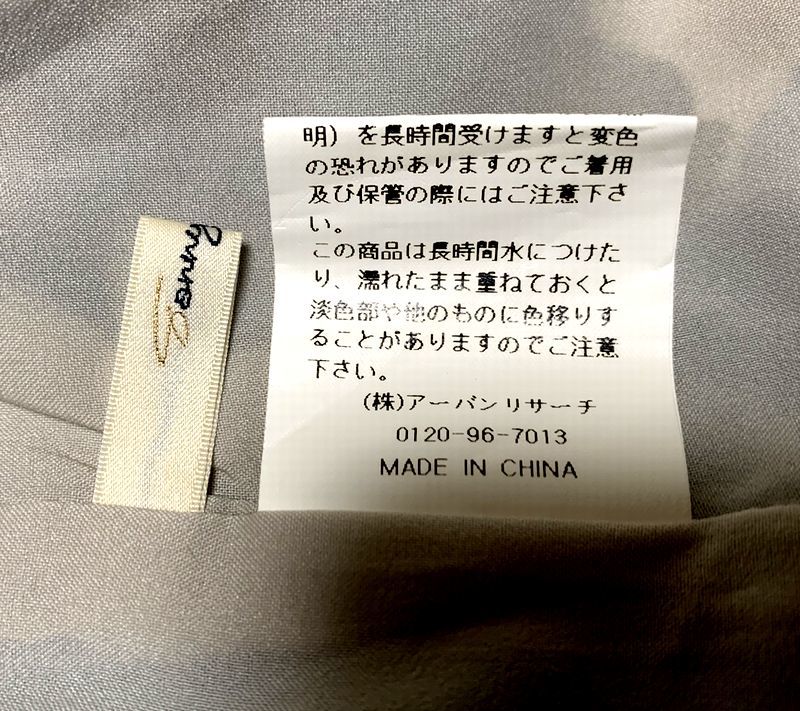 明）を長時間受けますと変色
の恐れがありますのでご着用
及び保管の際にはご注意下さ
い。
この商品は長時間水につけた
り、濡れたまま重ねておくと
淡色部や他のものに色移りす
ることがありますのでご注意
下さい。
(株)アーバンリサーチ
0120-96-7013
MADE IN CHINA